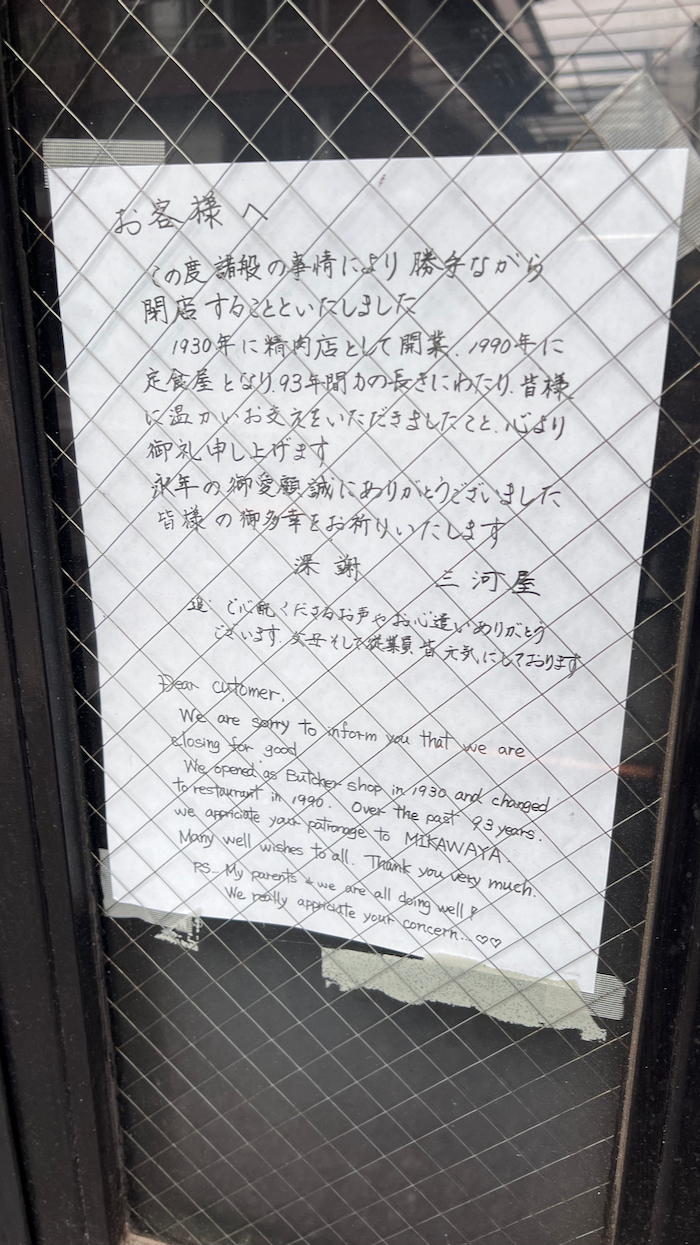 お客様へ
この度諸般の事情により勝手ながら
閉店することといたしました
1930年に精肉店として開業、1990年に
定食屋となり、93年間力の長きにわたり、皆様
に温かいお支えをいただきましたこと、心より
御礼申し上げます
永年の御愛顧誠にありがとうございました
皆様の御多幸をお祈りいたします
深謝 三河屋
追 ご心配くださるお声やお心遣いありがとう
ございます。父母そして従業員、皆元気にしております
Dear cutomer,
We are sorry to inform you that we are
closing for good
We opened as Butcher shop in 1930 and changed
to restaurant in 1990. Over the past 93 years.
we appriciate your patronage to MIKAWAYA.
Many well wishes to all. Thank you very much.
PS... My parents & we are all doing well!
We really appriciate your concern...♡♡